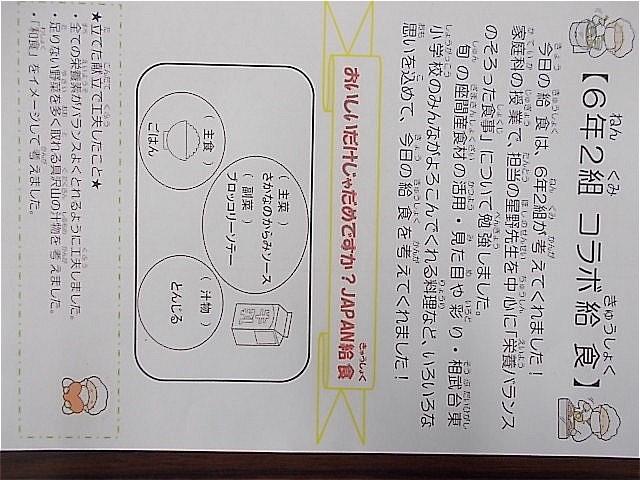 【6年2組 コラボ給食】
今日の給食は、6年2組が考えてくれました！
家庭科の授業で、担当の星野先生を中心に「栄養バランス
のそろった食事」について勉強しました。
旬の座間産食材の活用・見た目や彩り・相武台東
小学校のみんながよろこんでくれる料理など、いろいろな
思いを込めて、今日の給食を考えてくれました！
おいしいだけじゃだめですか？JAPAN給食
（主食）
ごはん
（主菜）
さかなのからみソース
（副菜）
ブロッコリーソテー
（汁物）
とんじる
★立てた献立で工夫したこと★
・全ての栄養素がバランスよくとれるように工夫しました。
・足りない野菜を多く取れる具沢山の汁物を考えました。
・「和食」をイメージして考えました。